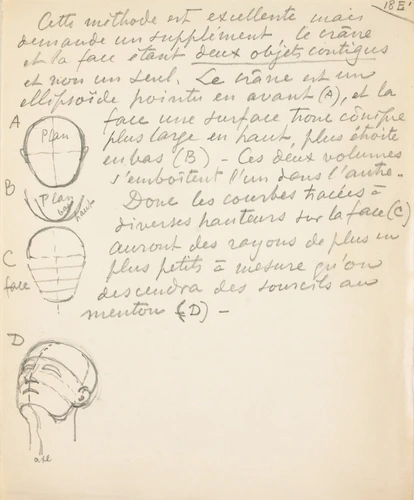 18E'
Cette méthode est excellente mais
demande un supplément, le crâne
et la face étant deux objets contigus
et non un seul. Le crâne est un
ellipsoïde pointu en avant (A), et la
face une surface tronc cônique
plus large en haut, plus étroite
en bas (B) - Ces deux volumes
s'emboîtent l'un dans l'autre.
Donc les courbes tracées à
diverses hauteurs sur la face (C)
auront des rayons de plus en
plus petits à mesure qu'on
descendra des sourcils au
menton (D) -
A
Plan
B
Plan
bas
haut
C
face
D
axe